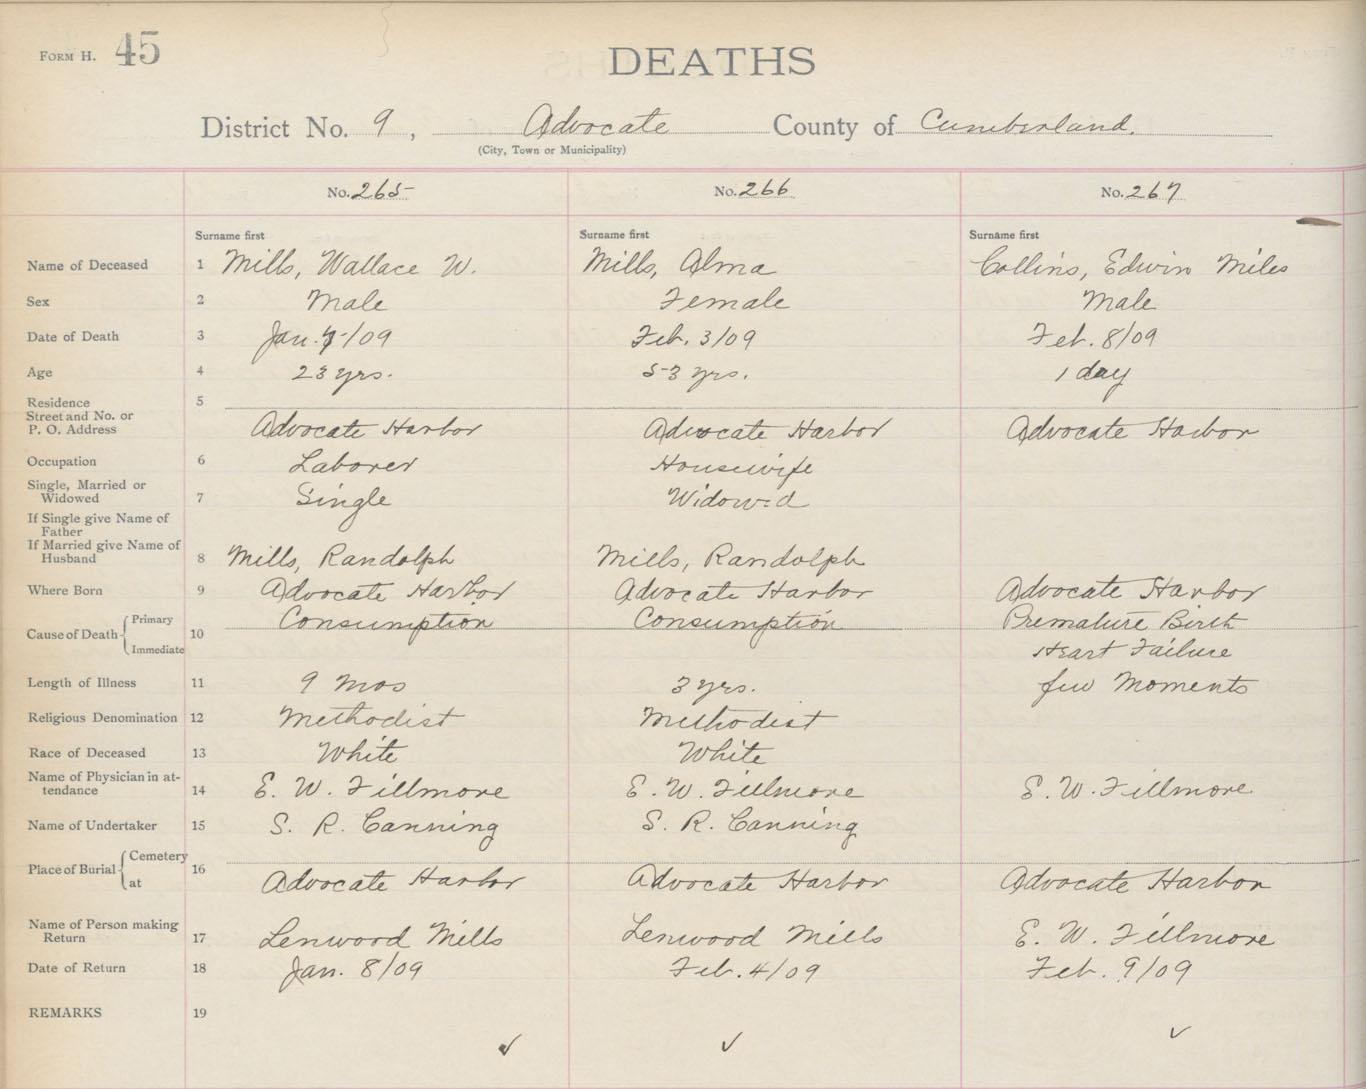 FORM H. 45
DEATHS
District No. 9, Advocate County of Cumberland.
(City, Town or Municipality)
No. 265 No. 266 No. 267
Surname first Surname first Surname first
Name of Deceased 1 Mills, Wallace W. Mills, Alma Collins, Edwin Miles
Sex 2 Male Female Male
Date of Death 3 Jan. 7/09 Feb. 3/09 Feb. 8/09
Age 4 23 yrs. 53 yrs. 1 day
Residence 5
Street and No. or
P. O. Address Advocate Harbor Advocate Harbor Advocate Harbor
Occupation 6 Laborer Housewife
Single, Married or
Widowed 7 Single Widowed
If Single give Name of
Father
If Married give Name of
Husband 8 Mills, Randolph Mills, Randolph
Where Born 9 Advocate Harbor Advocate Harbor Advocate Harbor
Cause of Death Primary 10 Consumption Consumption Premature Birth
Immediate Heart Failure
Length of Illness 11 9 Mos 3 yrs. few Moments
Religious Denomination 12 Methodist Methodist
Race of Deceased 13 White White
Name of Physician in at-
tendance 14 E. W. Fillmore E. W. Fillmore E. W. Fillmore
Name of Undertaker 15 S. R. Canning S. R. Canning
Place of Burial Cemetery 16
at Advocate Harbor Advocate Harbor Advocate Harbor
Name of Person making
Return 17 Lenwood Mills Lenwood Mills E. W. Fillmore
Date of Return 18 Jan. 8/09 Feb. 4/09 Feb. 9/09
REMARKS 19